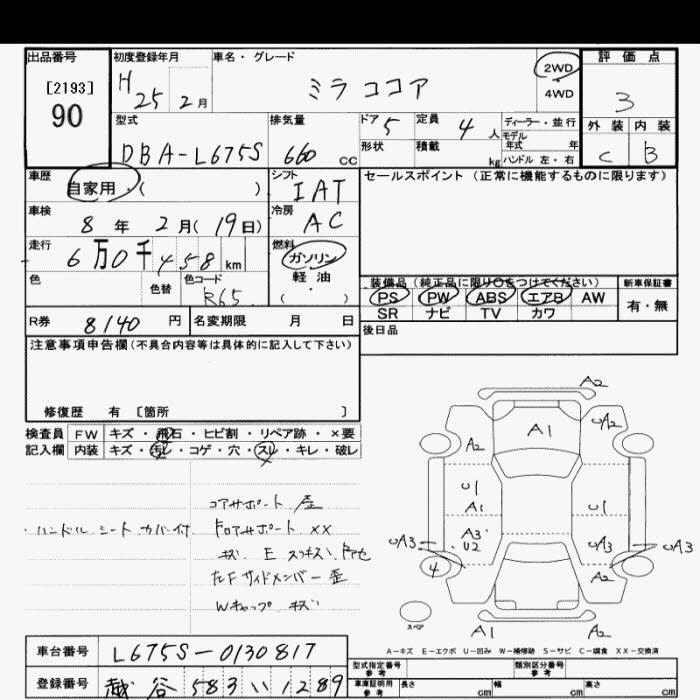 出品番号
[2193]
90
初度登録年月
H 25 2月
車名・グレード
ミラココア
2WD
・
4WD
評価点
3
外装 内装
C B
型式
DBA-L675S
排気量
660 CC
ドア
5
定員
4 人
形状
積載
kg
ディーラー・並行
モデル
年式 年
ハンドル 左・右
車歴
自家用・( )
シフト
IAT
セールスポイント(正常に機能するものに限ります)
車検
8 年 2 月( 19 日)
冷房
AC
走行
6 万 0 千 4 5 8 km
燃料
ガソリン
軽油
・
( )
色
色替
色コード
R65
装備品(純正品に限り○をつけてください)
PS PW ABS エアB AW
SR ナビ TV カワ
新車保証書
有・無
R券 8140 円
名変期限 月 日
後日品
注意事項申告欄(不具合内容等は具体的に記入して下さい)
修復歴 有 [箇所 ]
検査員
記入欄
FW キズ・飛石・ヒビ割・リペア跡・×要
内装 キズ・汚レ・コゲ・穴・スレ・キレ・破レ
・ハンドル シート カバー付
コアサポート 歪
ドロアサポート XX
キズ E
左F サイドメンバー 歪
Wキャップ キズ
A2
A1
A2
UA2
U1
A1
U1
A3
U2
UA3
UA3
UA3
4
A2
A1
A2
スペア
A-キズ E-エクボ U-凹み W-補修跡 S-サビ C-腐食 XX-交換済
車台番号
L675S-0130817
登録番号
越谷 583 い 1289
型式指定番号
参考
類別区分番号
参考
車庫証明用
参考
長さ cm 幅 cm 高さ cm